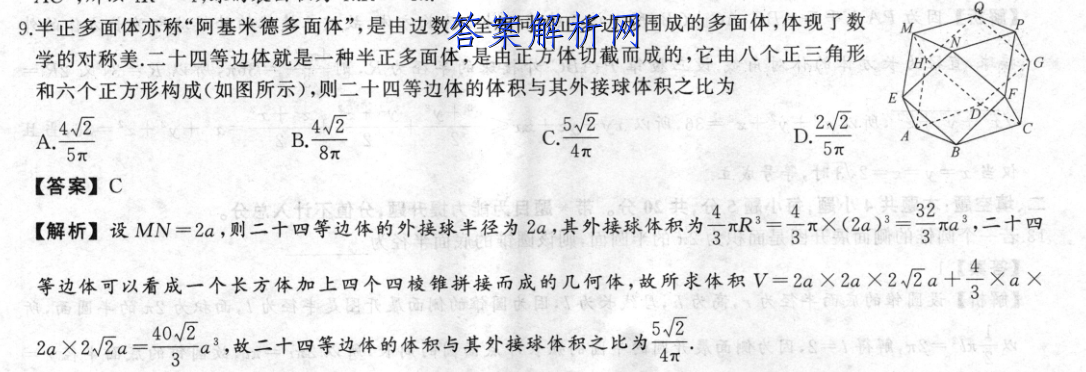 9.半正多面体亦称“阿基米德多面体”,是由边数 全 同 正 边 围成的多面体,体现了数
答案解析网
学的对称美.二十四等边体就是一种半正多面体,是由正方体切截而成的,它由八个正三角形
和六个正方形构成(如图所示),则二十四等边体的体积与其外接球体积之比为
A. 4√2/5π B. 4√2/8π C. 5√2/4π D. 2√2/5π
Q
M
P
N
H
G
E
F
D
A
C
B
【答案】C
【解析】设 MN=2a,则二十四等边体的外接球半径为 2a,其外接球体积为 4/3 πR³= 4/3 π×(2a)³= 32/3 πa³,二十四
等边体可以看成一个长方体加上四个四棱锥拼接而成的几何体,故所求体积 V=2a×2a×2√2a+ 4/3 ×a×
2a×2√2a= 40√2/3 a³,故二十四等边体的体积与其外接球体积之比为 5√2/4π.